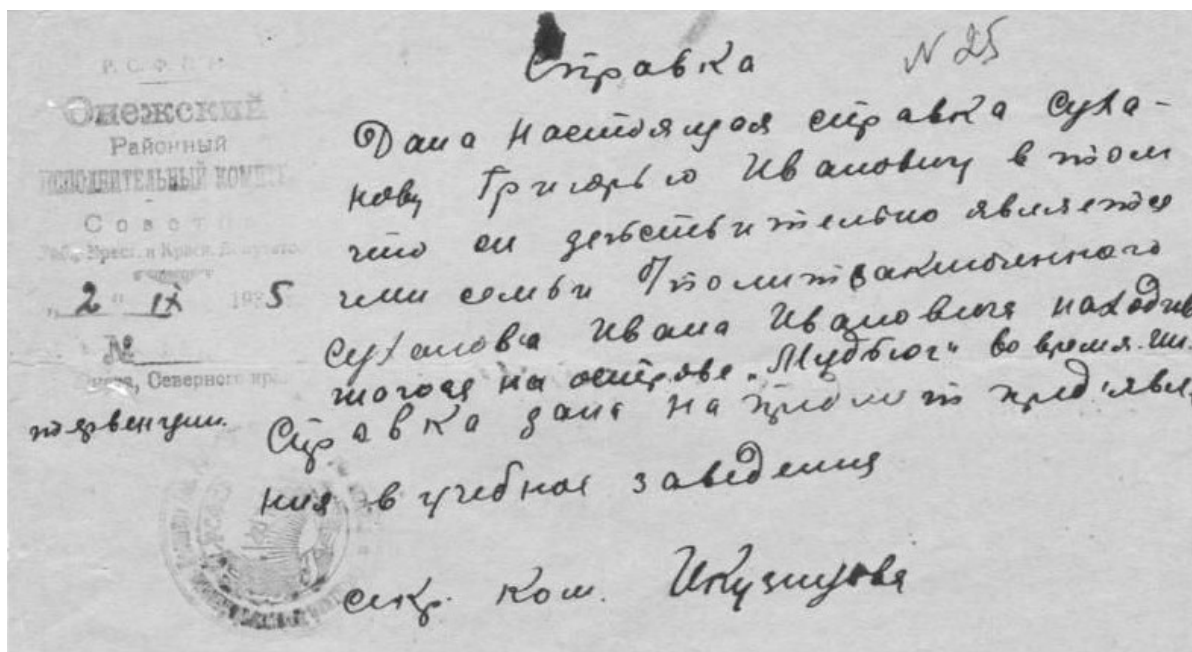 Р.С.Ф.С.Р.
Онежский
Районный
ИСПОЛНИТЕЛЬНЫЙ КОМИТЕТ
Совет
Раб., Крест. и Красн.
"2" IX 1935
№
Северного
Справка
N 25
Дана настоящая справка Суха-
нову Григорью Ивановичу в том
что он действительно является
член семьи политзаключенного
Суханова Ивана Ивановича находив
шогося на острове „Мудьюг“ во время ин-
тервенции.
Справка дана на предмет предъявле
ния в учебное заведения
секр. ком. ИКузнецова